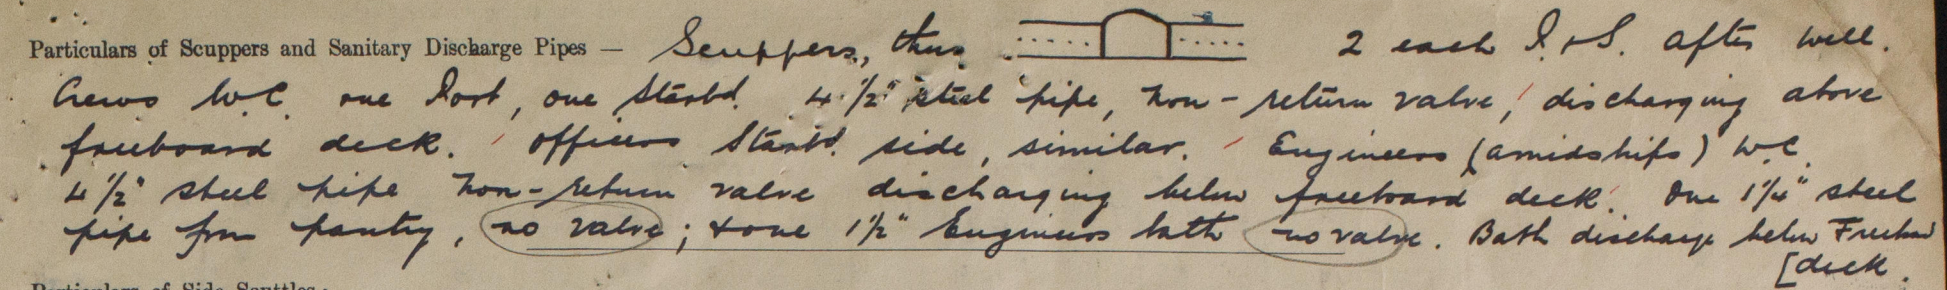 Particulars of Scuppers and Sanitary Discharge Pipes — Scuppers, thus 2 each P. & S. after well.
Crews W.C. one Port, one Starbd. 4 1/2" steel pipe, non-return valve, discharging above
freeboard deck. Officers Starbd. side, similar. Engineers (amidships) W.C.
4 1/2" steel pipe non-return valve discharging below freeboard deck. One 1 1/4" steel
pipe from pantry, no valve; & one 1 1/2" Engineers bath no valve. Bath discharge below Freeboard
[deck.
Particulars of Side Scuttles: